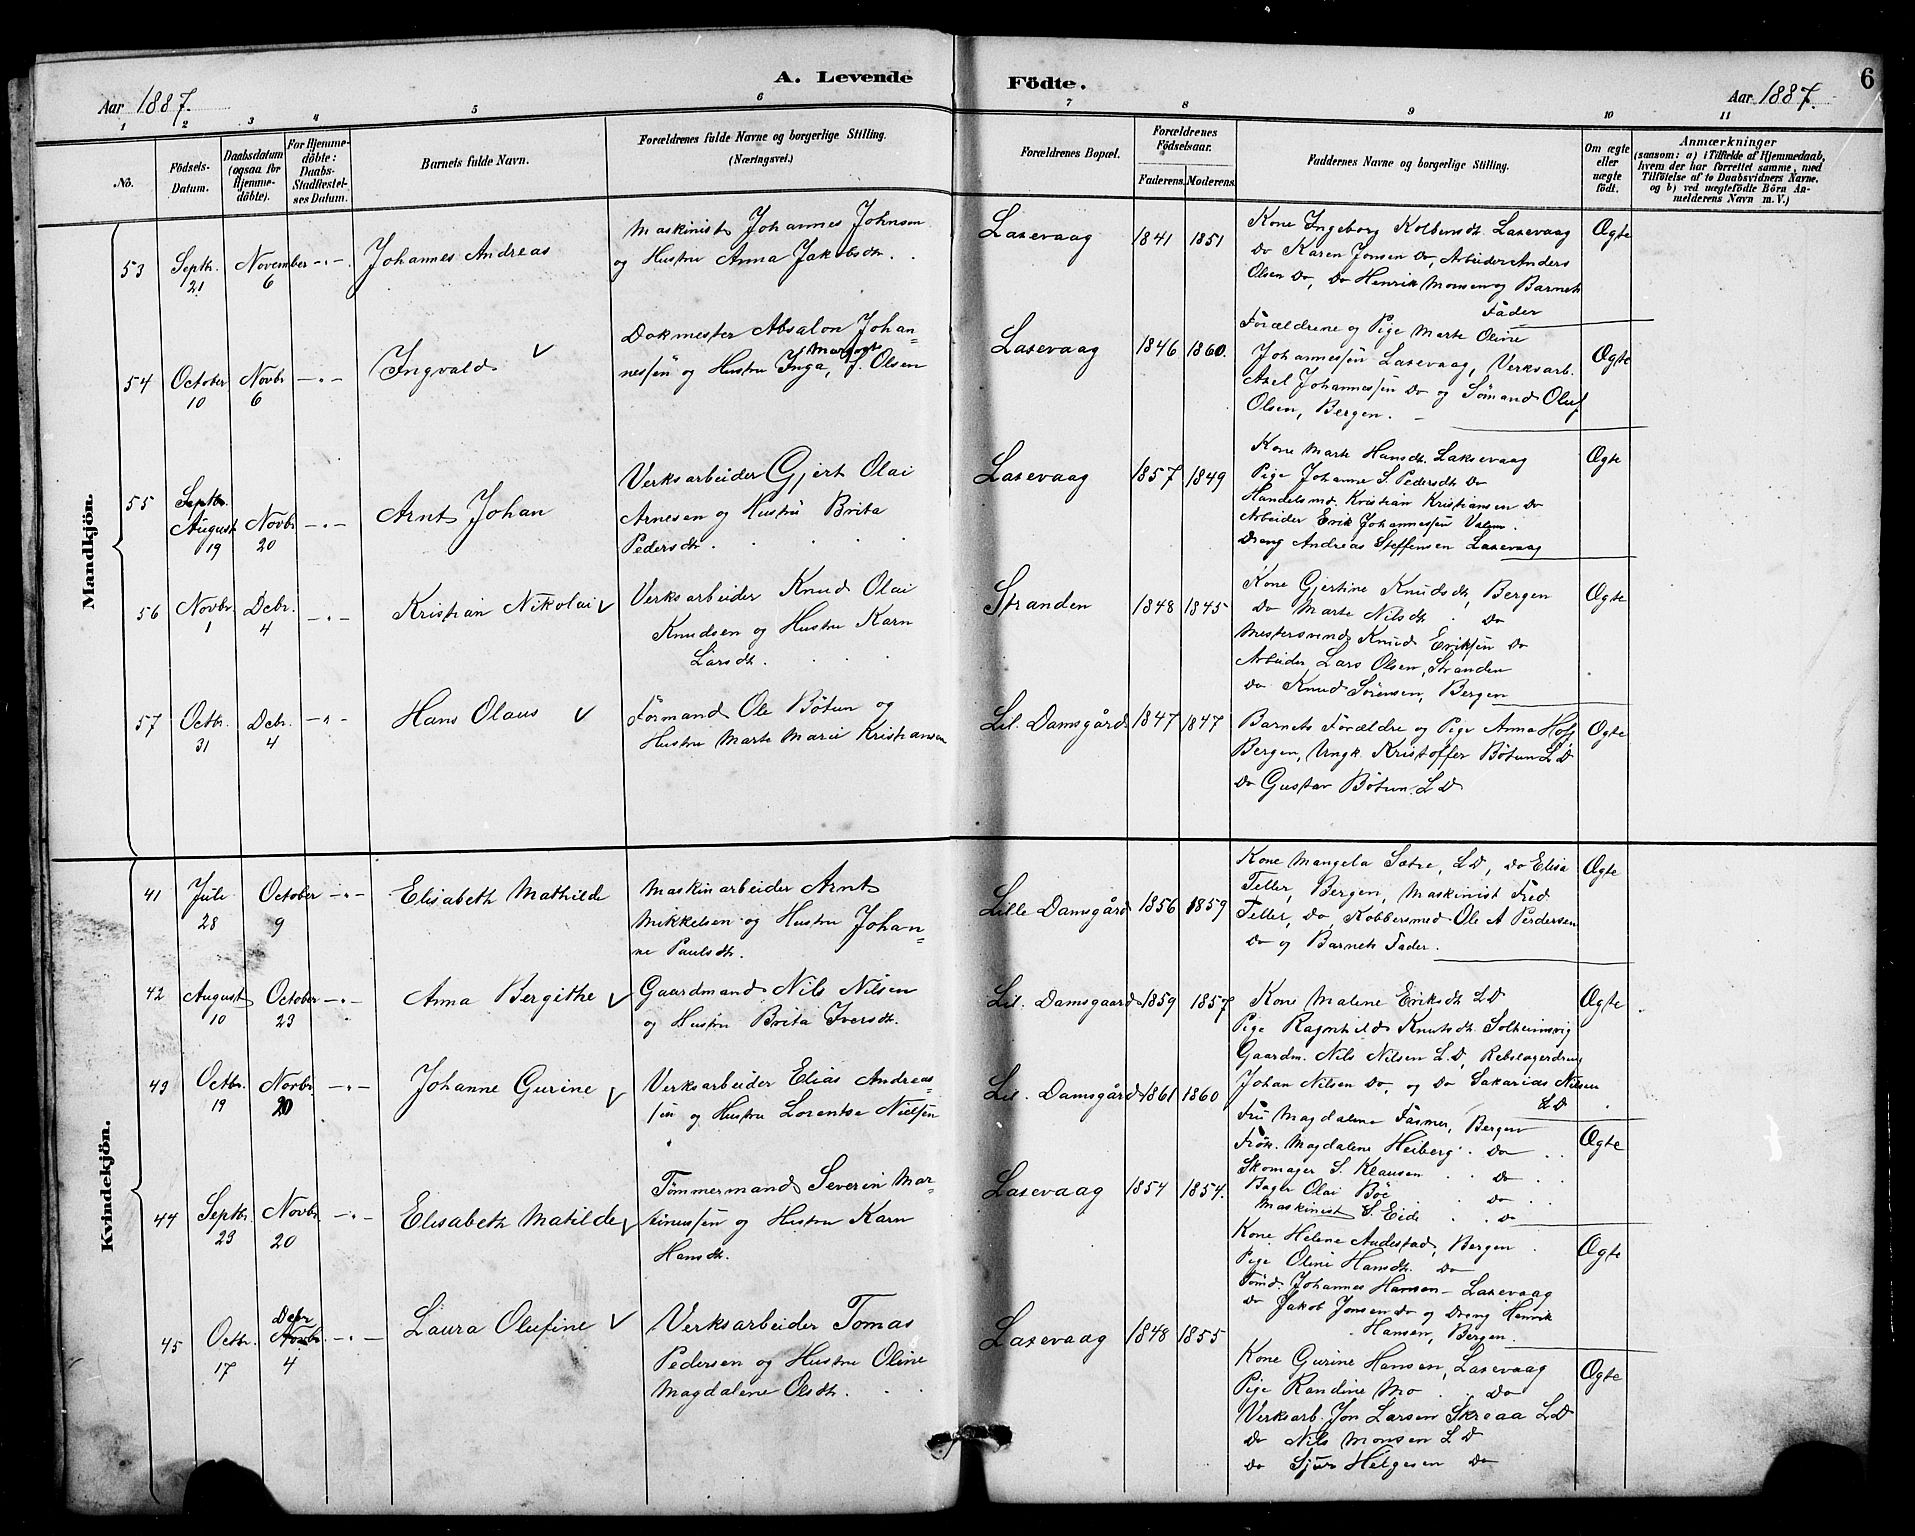 A. Levende Födte.
6
Aar 1887.
Aar 1887.
1 2 3 4 5 6 7 8 9 10 11
No.
Födsels-
Datum.
Daabsdatum
(ogsaa for
Hjemme-
döbte).
For Hjemme-
döbte:
Daabs-
Stadfæstel-
ses Datum.
Barnets fulde Navn.
Forældrenes fulde Navne og borgerlige Stilling.
(Næringsvei.)
Forældrenes Bopæl.
Forældrenes
Födselsaar.
Faderens. Moderens.
Faddernes Navne og borgerlige Stilling.
Om ægte
eller
uægte
födt.
Anmærkninger
(saasom: a) i Tilfælde af Hjemmedaab,
hvem der har forrettet samme, med
Tilföielse af to Daabsvidners Navne,
og b) ved uægtefödte Börn An-
melderens Navn m. V.)
Mandkjön.
53 Septbr. 21 November 6 -"- Johannes Andreas
Maskinist Johannes Johnsen
og Hustru Anna Jakobsdtr.
Laxevaag 1841 1851
Kone Ingeborg Kolbensdtr. Laxevaag
Do Karen Jonsen Do, Arbeider Anders
Olsen Do, Do Henrik Monsen og Barnets
Fader
Ægte
54 October 10 Novbr 6 -"- Ingvald v
Dokmester Absalon Johan-
nessen og Hustru Inga Margrete J. Olsen
Laxevaag 1846 1860.
Forældrene og Pige Marte Oline
Johannessen Laxevaag, Verksarb.
Axel Johannessen Do og Sömand Oluf
Olsen, Bergen.
Ægte
55 Septbr. August 19 Novbr 20 -"- Arnt Johan
Verksarbeider Gjert Olai
Arnesen og Hustru Brita
Pedersdtr.
Laxevaag 1857 1849
Kone Marte Hansdtr. Laksevaag
Pige Johanne S. Pedersdtr Do
Handelsmd. Kristian Kristiansen Do
Arbeider Erik Johannessen
Dreng Andreas Steffensen Laxevaag
Ægte
56 Novbr. 1 Debr. 4 -"- Kristian Nikolai v
Verksarbeider Knud Olai
Knudsen og Hustru Karn
Larsdtr.
Stranden 1848 1845
Kone Gjertine Knudsdtr, Bergen
Do Marte Nilsdtr Do
Mestersvend Knud Eriksen Do
Arbeider Lars Olsen, Stranden
Do Knud Sörensen, Bergen
Ægte
57 Octbr. 31 Debr. 4 -"- Hans Olaus v
Formand Ole Bötun og
Hustru Marte Marie Kristiansen
Lil. Damsgård 1847 1847
Barnets Forældre og Pige Anna Hof
Bergen, Ungk. Kristoffer Bötun L D
Do Gustav Bötun L D
Ægte
Kvindekjön.
41 Juli 28 October 9 -"- Elisabeth Mathilde
Maskinarbeider Arnt
Mikkelsen og Hustru Johan-
ne Paulsdtr.
Lille Damsgård 1856 1859
Kone Mangela Sætre, L D, Do Elisa
Teller, Bergen, Maskinist Fred
Teller, Do, Kobbersmed Ole A Perdersen
Do og Barnets Fader.
Ægte
42 August 10 October 23 -"- Anna Bergithe v
Gaardmand Nils Nilsen
og Hustru Brita Iversdtr.
Lil. Damsgaard 1859 1857
Kone Malene Eriksdtr L D
Pige Ragnhild Knutsdtr Solheimsvig
Gaardm. Nils Nilsen L. D, Rebslagerdreng
Johan Nilsen Do, og Do Sakarias Nilsen
L D
Ægte
43 Octbr. 19 Novbr. 20 -"- Johanne Gurine v
Verksarbeider Elias Andreas-
sen og Hustru Lorentse Nielsen
Lil. Damsgård 1861 1860
Fru Magdalene Fasmer, Bergen
Frök. Magdalene Heiberg Do
Skomager S. Klausen Do
Bager Olai Böe Do
Maskinist S. Eide Do
Ægte
44 Septbr. 23 Novbr. 20 -"- Elisabeth Matilde v
Tömmermand Severin Mar-
tinussen og Hustru Karn
Hansdtr.
Laxevaag 1854 1854.
Kone Helene Audestad, Bergen
Pige Oline Hansdtr. Do
Tömd. Johannes Hansen - Laxevaag
Do Jakob Jonsen Do og Dreng Henrik
Hansen, Bergen.
Ægte
45 Octbr. 17 Debr Novbr. 4 -"- Laura Olufine v
Verksarbeider Tomas
Pedersen og Hustru Oline
Magdalene Olsdtr.
Laxevaag 1848 1855
Kone Gurine Hansen, Laxevaag
Pige Randine Mo Do
Verksarb. Jon Larsen Skreaa L D
Do Nils Monsen L D
Do Sjur Helgesen Do
Ægte